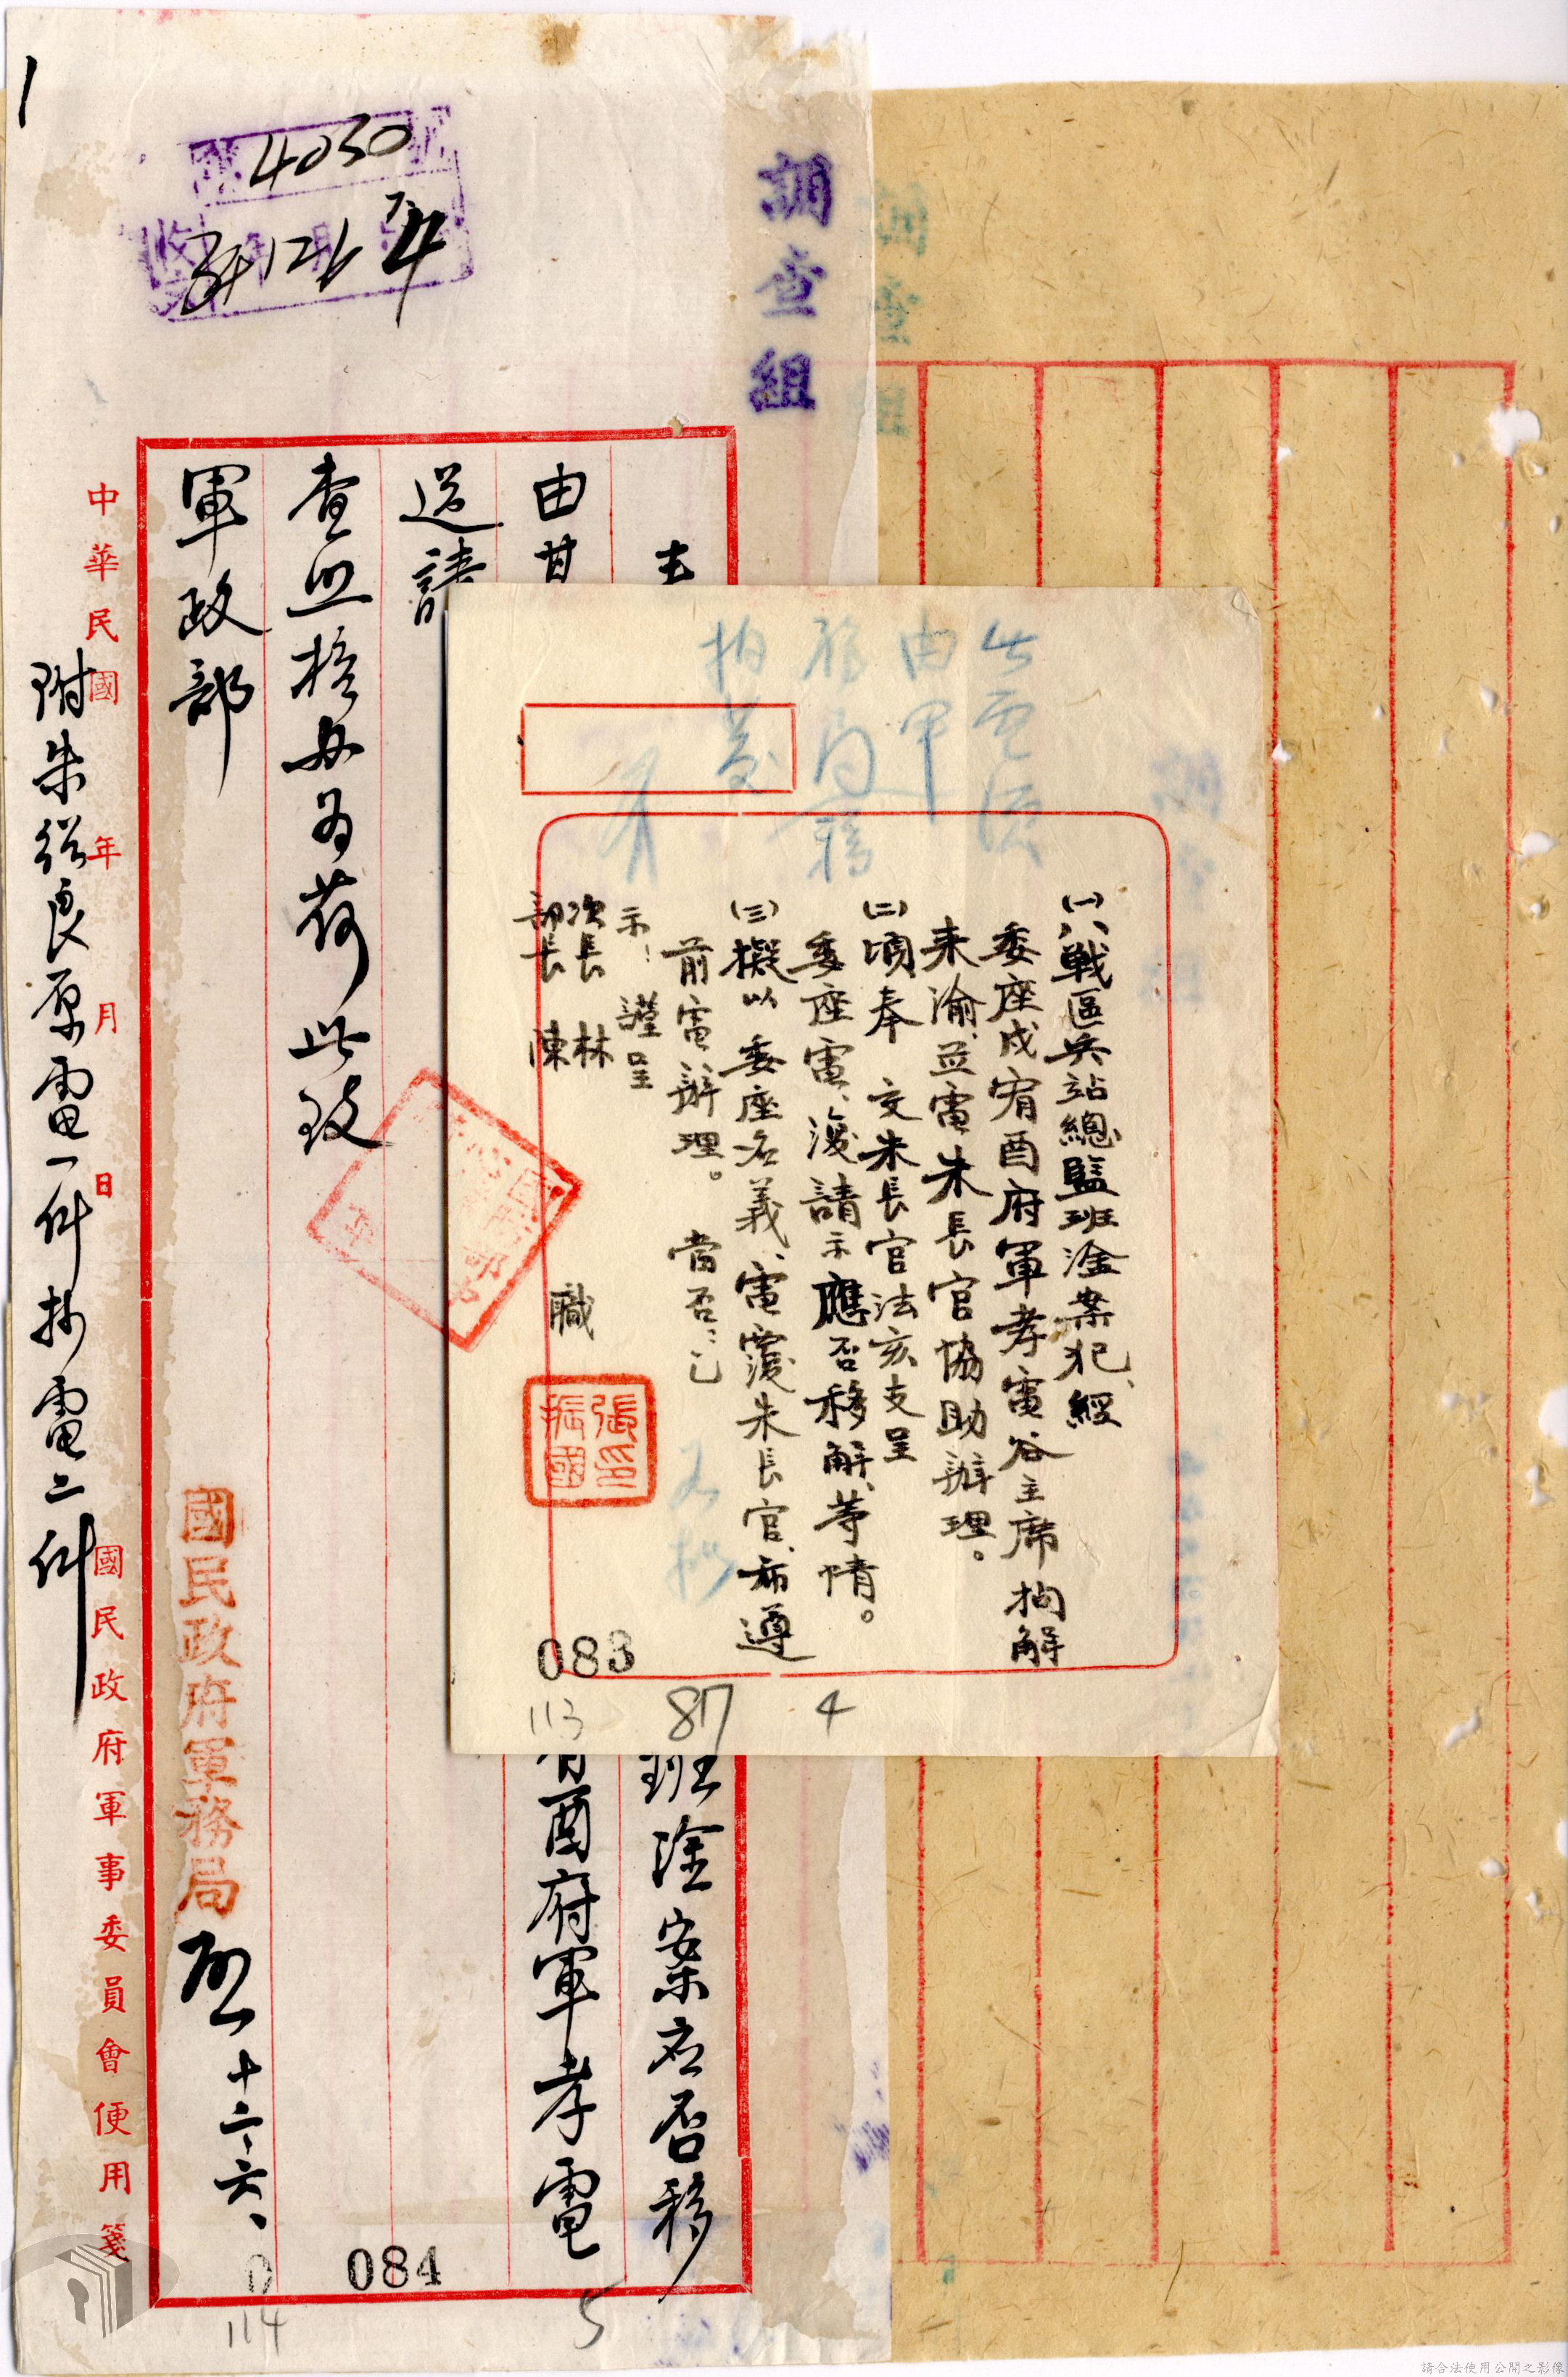 調查組
4030
由甘
送請
查照核办为荷此致
軍政部
國民政府軍務局啟十二、六、
附朱紹良原電一件抄電二件
中華民國 年 月 日
國民政府軍事委員會便用箋
班淦案应否移
酉府軍孝電
084
114
5
此電須
由軍
務局
(一)八戰區兵站總監班淦案犯、經
委座戌宥酉府軍孝電谷主席拘解
来渝、並電朱長官協助辦理。
(二)頃奉 交朱長官法亥支呈
委座電、復請示應否移解、等情。
(三)擬以 委座名義、電覆朱長官、布遵
前電辦理。 當否、
示! 謹呈
次長 林
部長 陳
職
張振國印
083
113
87
4
請合法使用公開之影像